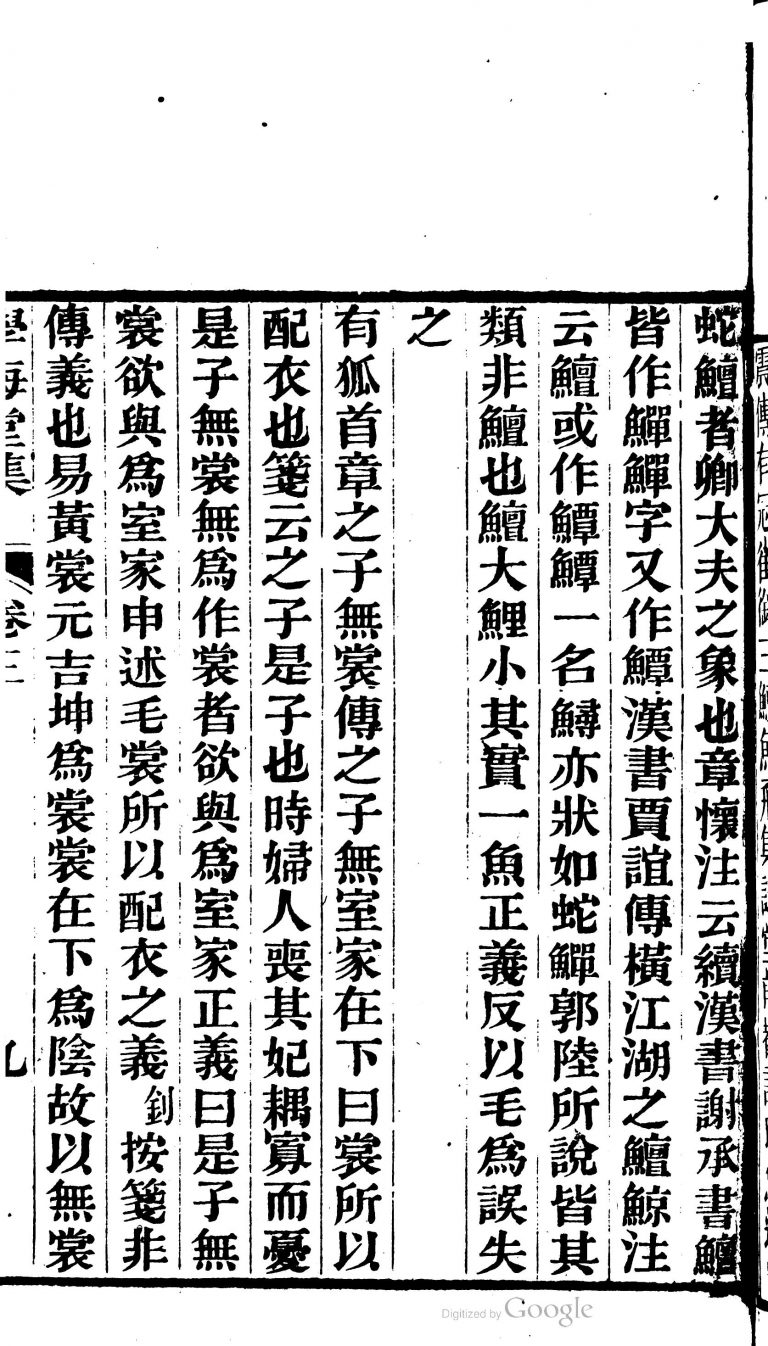 蛇鱣者卿大夫之象也章懷注云續漢書謝承書鱣
皆作鱓鱓字又作鱏漢書賈誼傳橫江湖之鱣鯨注
云鱣或作鱏鱏一名鱘亦狀如蛇鱓郭陸所說皆其
類非鱣也鱣大鯉小其實一魚正義反以毛爲誤失
之
有狐首章之子無裳傳之子無室家在下曰裳所以
配衣也箋云之子是子也時婦人喪其妃耦寡而憂
是子無裳無爲作裳者欲與爲室家正義曰是子無
裳欲與爲室家申述毛裳所以配衣之義釗按箋非
傳義也易黃裳元吉坤爲裳裳在下爲陰故以無裳
學海堂集 卷三 九
Digitized by Google